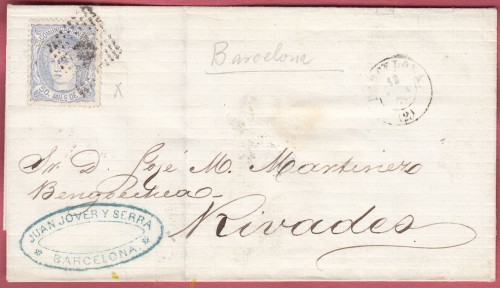 50 MILS DE
Barcelona
BARCELONA
(2)
Sr. D. José M. Martinero
Bengoechea
Rivades
JUAN JOVER Y SERRA
BARCELONA